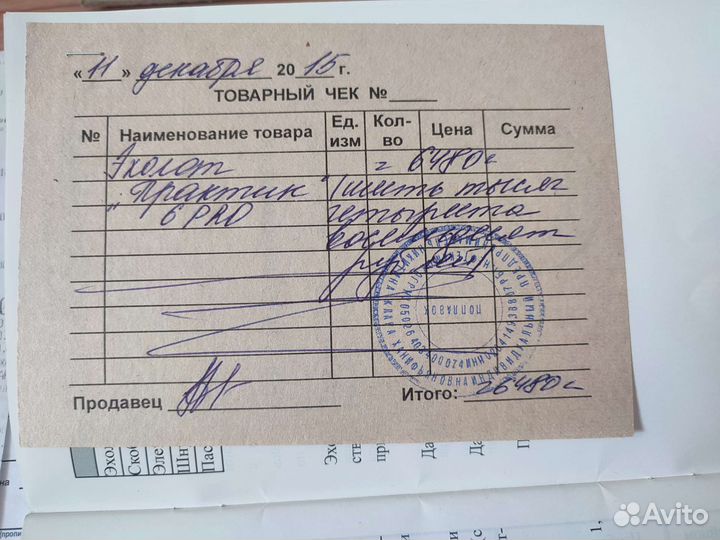 « 11 » декабря 2015 г.
ТОВАРНЫЙ ЧЕК №
№ Наименование товара Ед. изм Кол-во Цена Сумма
Эхолот = 6480=
"Практик" (шесть тысяч
6 PRO четыреста
восемьдесят
рублей)
ПОПЛАВОК
Продавец Итого: =6480=
Эхол
Скоб
Эле
Шн
Пас
Avito